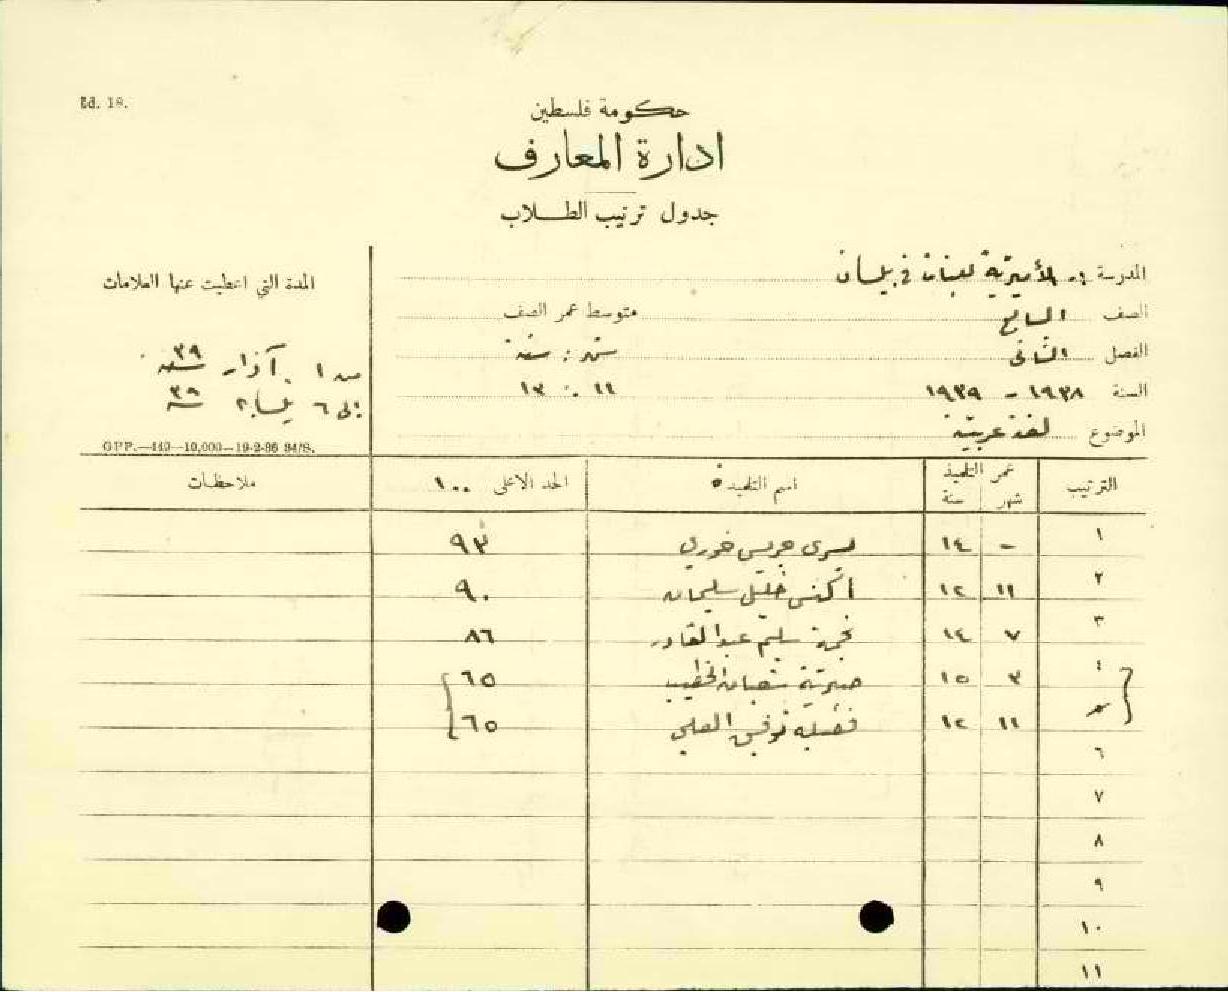 Ed. 18.
حكومة فلسطين
ادارة المعارف
جدول ترتيب الطلاب
المدرسة الأميرية للبنات في بيسان
الصف السابع
متوسط عمر الصف
الفصل الثاني
شهر : سنة
السنة ١٩٣٨ - ١٩٣٩
١١ : ١٣
الموضوع لغة عربية
المدة التي اعطيت عنها العلامات
من ١ آذار سنة ٣٩
الى ٦ نيسان سنة ٣٩
GPP.—440—10,000—19-2-36 94/S.
الترتيب عمر التلميذ شهر سنة اسم التلميذة الحد الاعلى ١٠٠ ملاحظات
١ - ١٤ يسرى جريس خوري ٩٣
٢ ١١ ١٢ اكنس خليل سليمان ٩٠
٣ ٧ ١٤ نجمة سليم عبد القادر ٨٦
٤ ٣ ١٥ صبرية شعبان الخطيب ٦٥
١١ ١٢ فضيله توفيق العلي ٦٥
٦
٧
٨
٩
١٠
١١